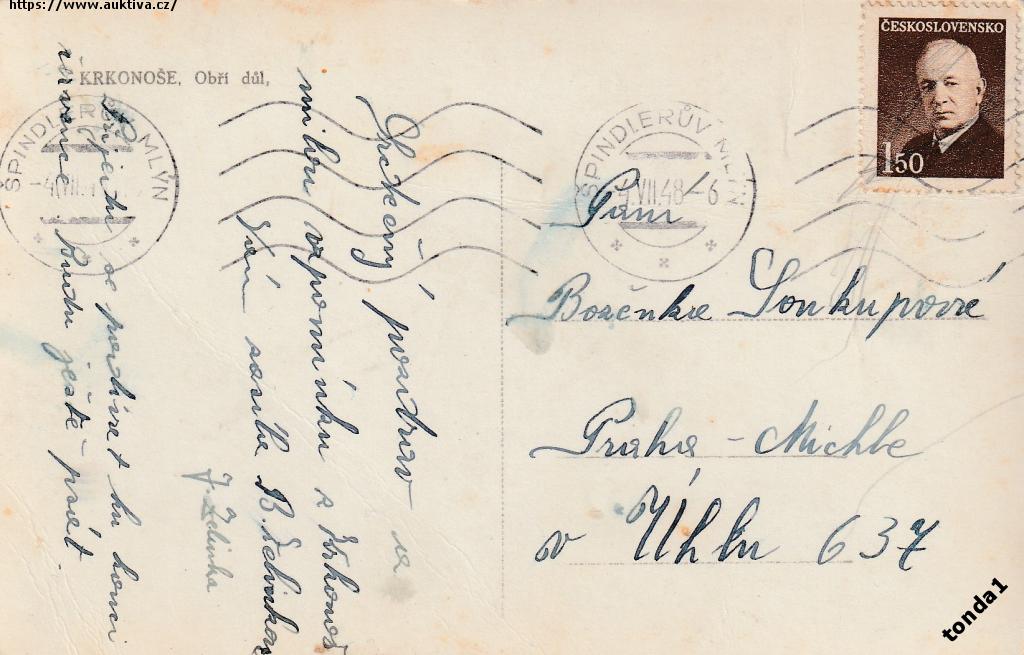 https://www.auktiva.cz/
KRKONOŠE, Obří důl,
ŠPINDLERŮV MLÝN
ŠPINDLERŮV MLÝN
4.VII.48-6
ČESKOSLOVENSKO
1 50
Srdečný pozdrav a
milou vzpomínku z Krkonoš
Vám zasílá B. Zelinková
J. Zelinka
Přijedu se podívat ku konci
července. Budu ještě psát.
Paní
Boženka Soukupová
Praha - Michle
v Úhlu 637
tonda1